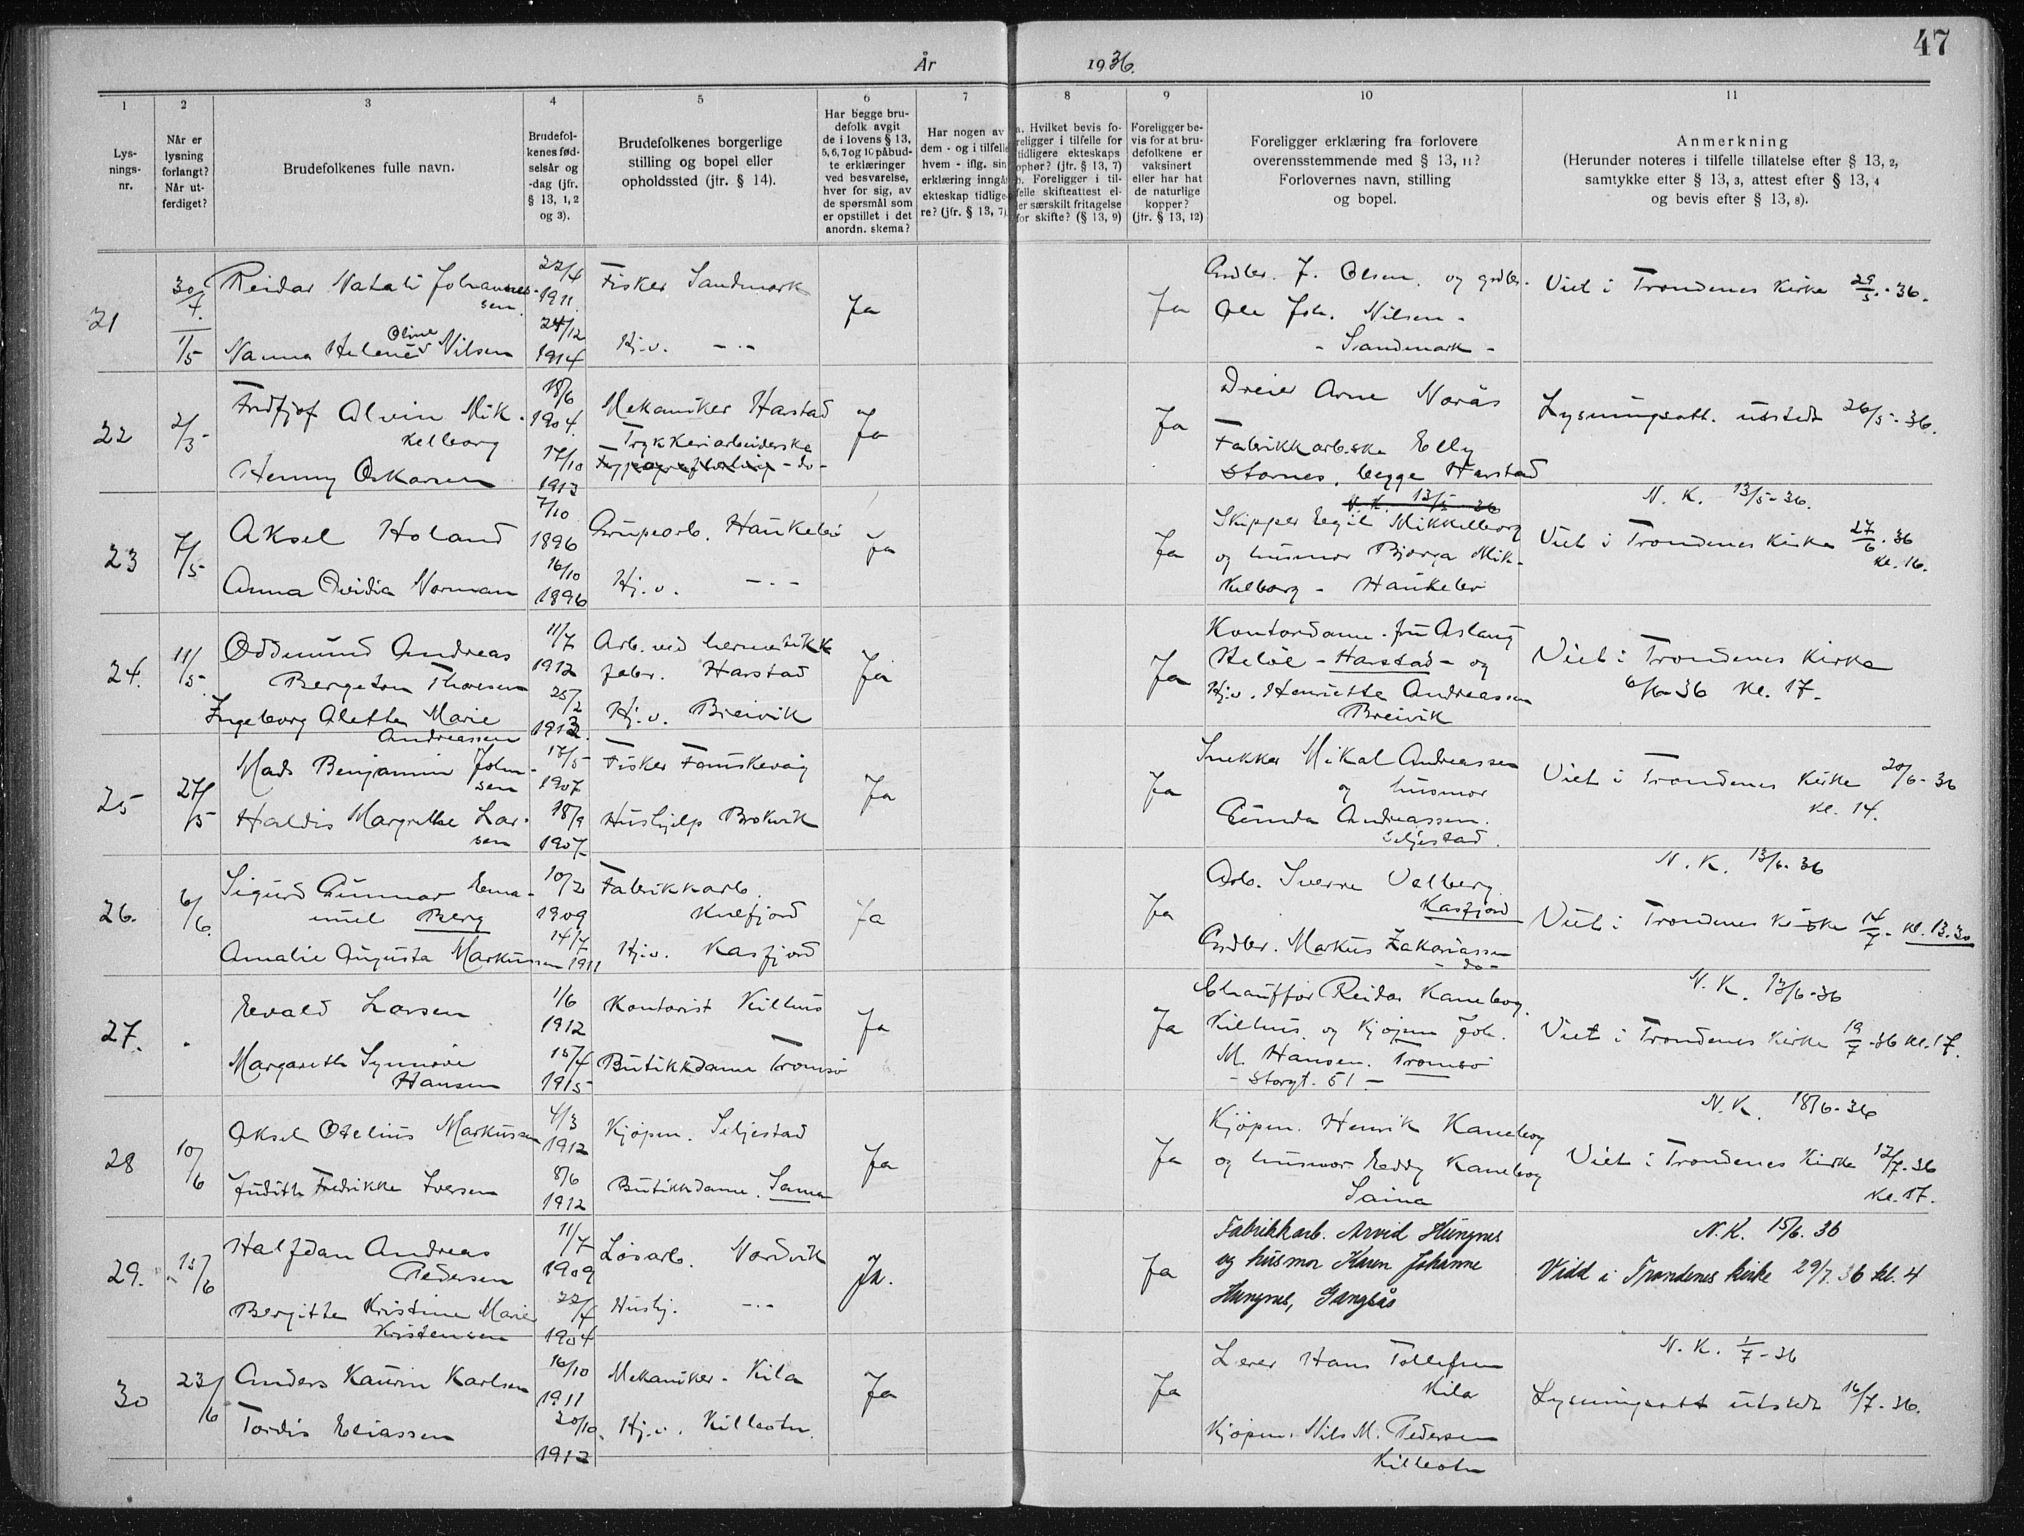 47
År 1936.
1 2 3 4 5 6 7 8 9 10 11
Lys-
nings-
nr.
Når er
lysning
forlangt?
Når ut-
ferdiget?
Brudefolkenes fulle navn.
Brudefol-
kenes fød-
selsår og
-dag (jfr.
§ 13, 1, 2
og 3).
Brudefolkenes borgerlige
stilling og bopel eller
opholdssted (jfr. § 14).
Har begge bru-
defolk avgit
de i lovens § 13,
5, 6, 7 og 10 påbud-
te erklæringer
ved besvarelse,
hver for sig, av
de spørsmål som
er opstillet i det
anordn. skema?
Har nogen av
dem - og i tilfelle
hvem - iflg. sin
erklæring inngå
ekteskap tidlige-
re? (jfr. § 13, 7)
a. Hvilket bevis fo-
religger i tilfelle for
tidligere ekteskaps
ophør? (jfr. § 13, 7)
b. Foreligger i til-
felle skifteattest el-
ler særskilt fritagelse
for skifte? (§ 13, 9)
Foreligger be-
vis for at bru-
defolkene er
vaksinert
eller har hat
de naturlige
kopper?
(jfr. § 13, 12)
Foreligger erklæring fra forlovere
overensstemmende med § 13, 11?
Forlovernes navn, stilling
og bopel.
Anmerkning
(Herunder noteres i tilfelle tillatelse efter § 13, 2,
samtykke efter § 13, 3, attest efter § 13, 4
og bevis efter § 13, 8).
21
30/4.
1/5
Reidar Natali Johannes-
sen.
Oline
Nanna Helene Nilsen
22/4
1911.
24/12
1914
Fisker Sandmark
Hj.v. -.-
Ja
Ja
Grdbr. J. Olsen. og grdbr.
Ole Joh. Nilsen -
- Sandmark -
Viet i Trondenes Kirke 29/5 - 36.
22
2/5
Fridtjof Alvin Mik-
kelborg
Henny Oskarsen
18/6
1904.
17/10
1913
Mekaniker Harstad
Trykkeriarbeiderske
- do -
Ja
Ja
Dreier Arne Norås
Fabrikkarb.ske Elly
Stornes, begge Harstad
Lysningsatt. utstedt 26/5 - 36.
23
7/5
Aksel Holand
Anna Ovidia Norman
7/10
1896
16/10
1896
Grupearb. Haukebø
Hj.v. -.-
Ja
Ja
N.K. 13/5 36
Skipper Egil Mikkelborg
og husmor Bjorga Mik-
kelborg - Haukebø
N. K. 13/5 - 36.
Viet i Trondenes Kirke 27/6 - 36
Kl. 16.
24.
11/5.
Oddmund Andreas
Bergeton Thoresen
Ingeborg Alette Marie
Andreassen
11/7
1912
25/2
1913.
Arb. ved hermetikk
fabr. Harstad
Hj.v. Breivik
Ja
Ja
Kontordame. fru Aslaug
- Harstad - og
Hj.v. Henriette Andreassen
Breivik
Viet i Trondenes Kirke
6/6-36 Kl. 17.
25
27/5
Mads Benjamin John-
sen
Haldis Margrethe Lar-
sen
17/5
1907
18/9
1907.
Fisker Fauskevåg
Hushjelp Brokvik
Ja
Ja
Snekker Mikal Andreassen
og husmor
Gunda Andreassen.
Seljestad.
Viet i Trondenes Kirke 20/6 - 36
Kl. 14.
26.
6/6.
Sigurd Gunnar Ema-
nuel Berg
Amalie Augusta Markussen
10/2
1909
14/7
1911
Fabrikkarb.
Hj.v. Kasfjord
Ja
Ja
Arb. Sverre Valberg.
Kasfjord
Grdbr. Markus Zakariassen
- do -
N. K. 13/6 - 36
Viet i Trondenes Kirke 14/7 - Kl. 13.30
27.
Evald Larsen
Margareth Synnøve
Hansen
1/6
1912
15/4
1915
Kontorist Kilhus
Butikkdame Tromsø
Ja
Ja
Chauffør Reidar Kaneborg.
Kilhus. og Kjøpm. Joh.
M. Hansen. Tromsø
- Storgt. 51 -
N. K. 13/6 - 36
Viet i Trondenes Kirke 19/7 - 36 Kl. 17.
28
10/6
Aksel Otelius Markussen
Judith Fredrikke Iversen
4/3
1912
8/6
1912
Kjøpm. Seljestad
Butikkdame. Sama
Ja
Ja
Kjøpm. Henrik Kaneborg
og husmor Eddy Kaneborg
Sama
N. K. 18/6 - 36
Viet i Trondenes Kirke 12/7 - 36
Kl. 17.
29.
15/6
Halfdan Andreas
Pedersen
Bergitte Kristine Marie
Kristensen
11/7
1909
22/4
1904
Løsarb. Nordvik
Hushj. -.-
Ja.
Ja
Fabrikkarb. Arvid Hungnes
og husmor Karen Johanne
Hungnes, Gangsås
N. K. 15/6. 36
Vidd i Trondenes kirke 29/7. 36 kl. 4
30
23/6
Anders Kaurin Karlsen
Tordis Eliassen
16/10
1911
20/10.
1912
Mekaniker - Kila
Hj.v. Killbotn.
Ja
Ja
Lærer Hans Tollefsen
Kila
Kjøpm. Nils M. Pedersen
Killbotn
N. K. 1/7 - 36
Lysningsatt utstedt 16/7 - 36.